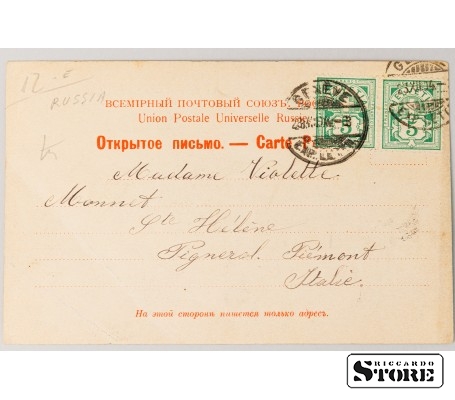 12-e
RUSSIA
ВСЕМІРНЫЙ ПОЧТОВЫЙ СОЮЗЪ.
Union Postale Universelle Russie
Открытое письмо. — Carte
GENÈVE
EXP. LETT.
5
5
Madame Violette
Monnet
Ste Hélène
Pignerol. Piémont
Italie.
На этой сторонѣ пишется только адресъ.
RICCARDO
STORE